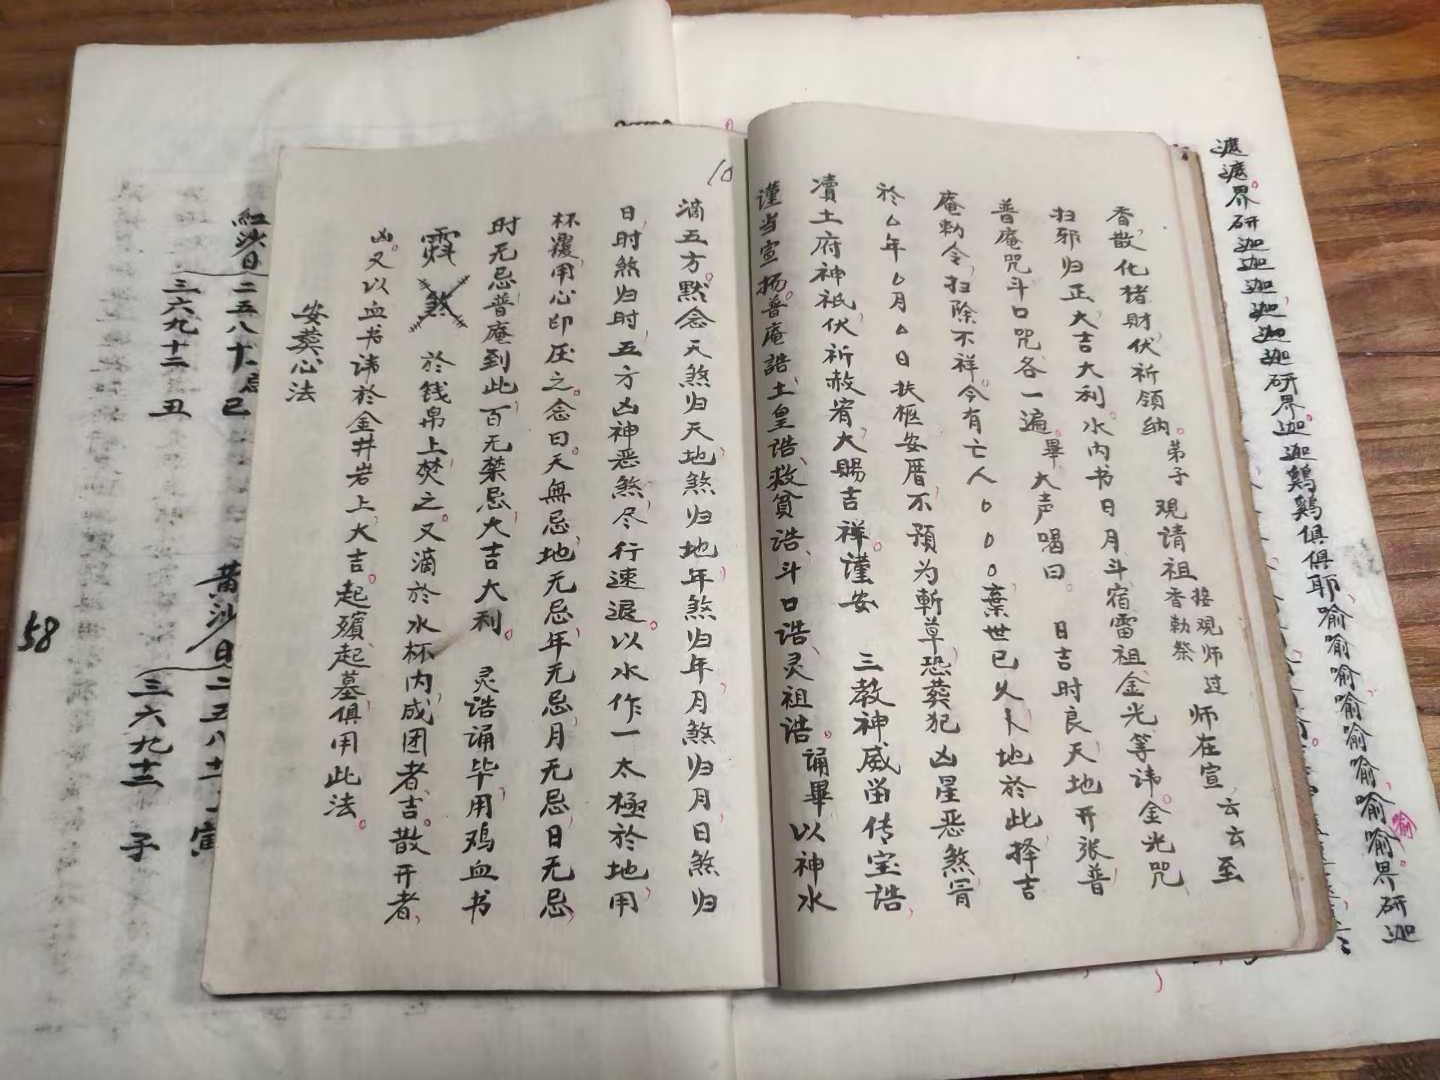 遮遮界研迦迦迦迦迦研界迦迦鷄鷄俱俱耶喻喻喻喻喻喻喻喻界研迦
喻
弟子 观请祖 接观师过 师在宣 云云至
香勅祭
香散化楮財伏祈領纳
扫邪归正大吉大利水内书日月斗宿雷祖金光等讳金光咒
普庵咒斗口咒各一遍畢大声喝曰 日吉时良天地开张普
庵勅令扫除不祥今有亡人〇〇〇棄世已久卜地於此择吉
於〇年〇月〇日扶柩安厝不預为斬草恐葬犯凶星恶煞冒
瀆土府神祇伏祈赦宥大賜吉祥謹安 三教神威畄传宝誥
谨当宣扬普庵誥土皇诰救貧诰斗口诰灵祖诰诵畢以神水
10
滴五方默念天煞归天地煞归地年煞归年月煞归月日煞归
日时煞归时五方凶神恶煞尽行速退以水作一太極於地用
杯覆用心印压之念曰天無忌地无忌年无忌月无忌日无忌
时无忌普庵到此百无禁忌大吉大利 灵诰诵毕用鸡血书
煞 於钱帛上焚之又滴於水杯内成团者吉散开者
凶又以血书讳於金井岩上大吉起殯起墓俱用此法
安葬心法
紅沙日 二五八十
巳
三六九十二 丑
黄沙日 二五八十一 寅
三六九十二 子
58